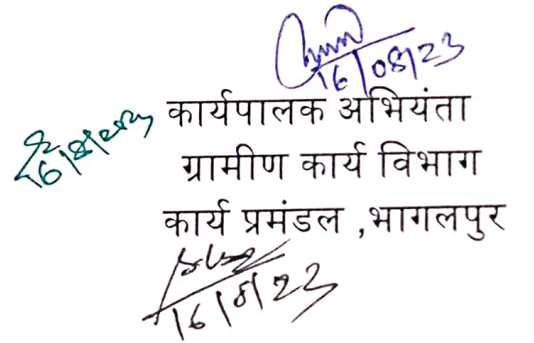 16/08/23
16/8/2023
कार्यपालक अभियंता
ग्रामीण कार्य विभाग
कार्य प्रमंडल ,भागलपुर
16/8/23